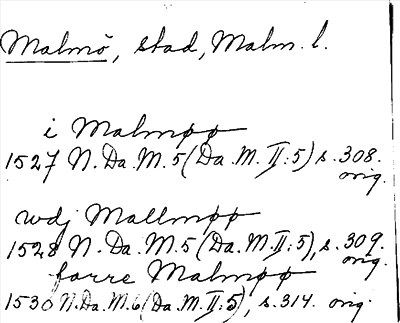 Malmö, stad, Malm. l.
i Malmøø
1527 N. Da. M. 5 (Da. M. II:5) s. 308.
orig.
wdj Mallmøø
1528 N. Da. M. 5 (Da. M. II:5), s. 309.
orig.
forre Malmøø
1530 N. Da. M. 6 (Da. M. II:5), s. 314. orig.